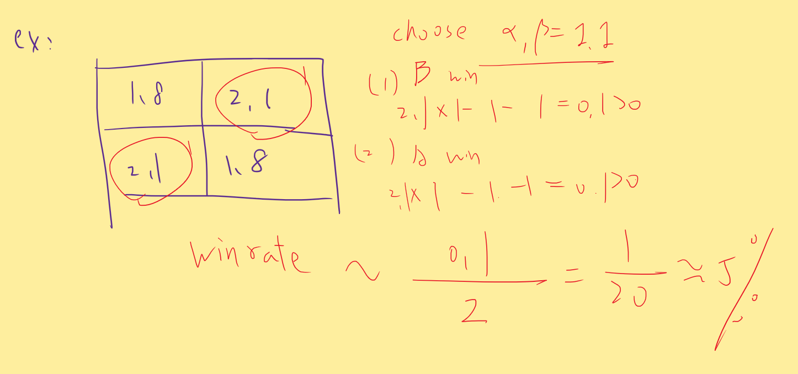 ex:
1,8 2,1
2,1 1,8
choose α,β=1,1
(1) B win
2,1×1-1-1=0,1>0
(2) A win
2,1×1-1-1=0.1>0
winrate ~ 0,1/2 = 1/20 ≈ 5%